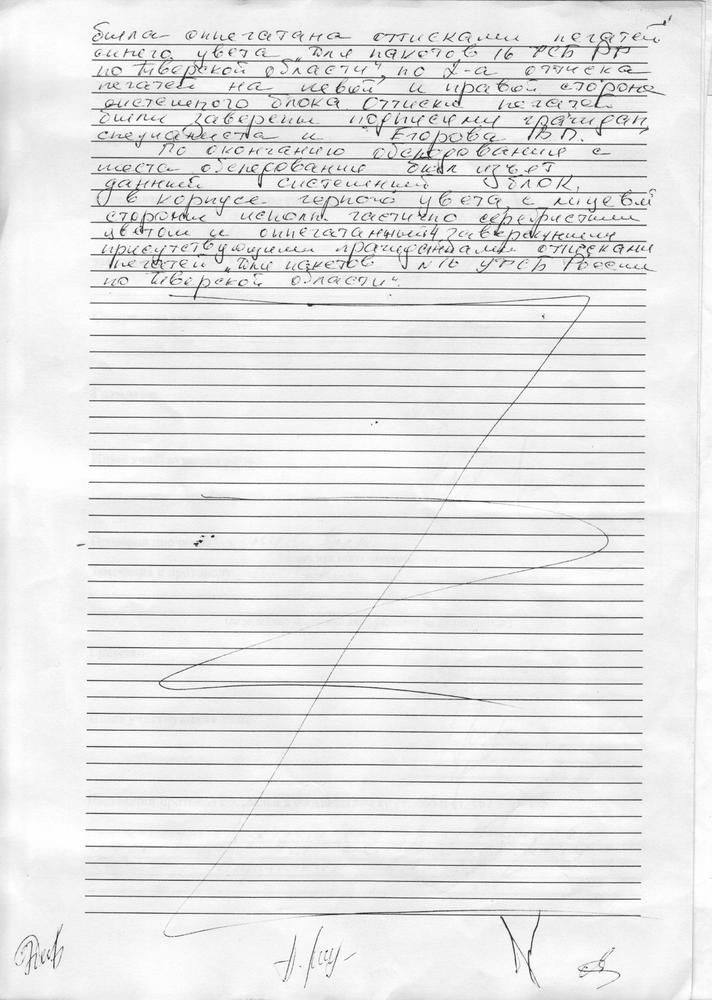 была опечатана оттисками печатей
синего цвета "Для пакетов 16 УФСБ РФ
по Тверской области", по 2-а оттиска
печатей на левой и правой стороне
системного блока. Оттиски печатей
были заверены подписями граждан,
специалиста и Егорова В.П.
По окончанию обследования с
места обследования был изъят
данный системный блок,
в корпусе черного цвета, с лицевой
стороны исполн. частично серебристым
цветом и опечатанный, заверенными
присутствующими гражданами оттисками
печатей "Для пакетов №16 УФСБ России
по Тверской области".